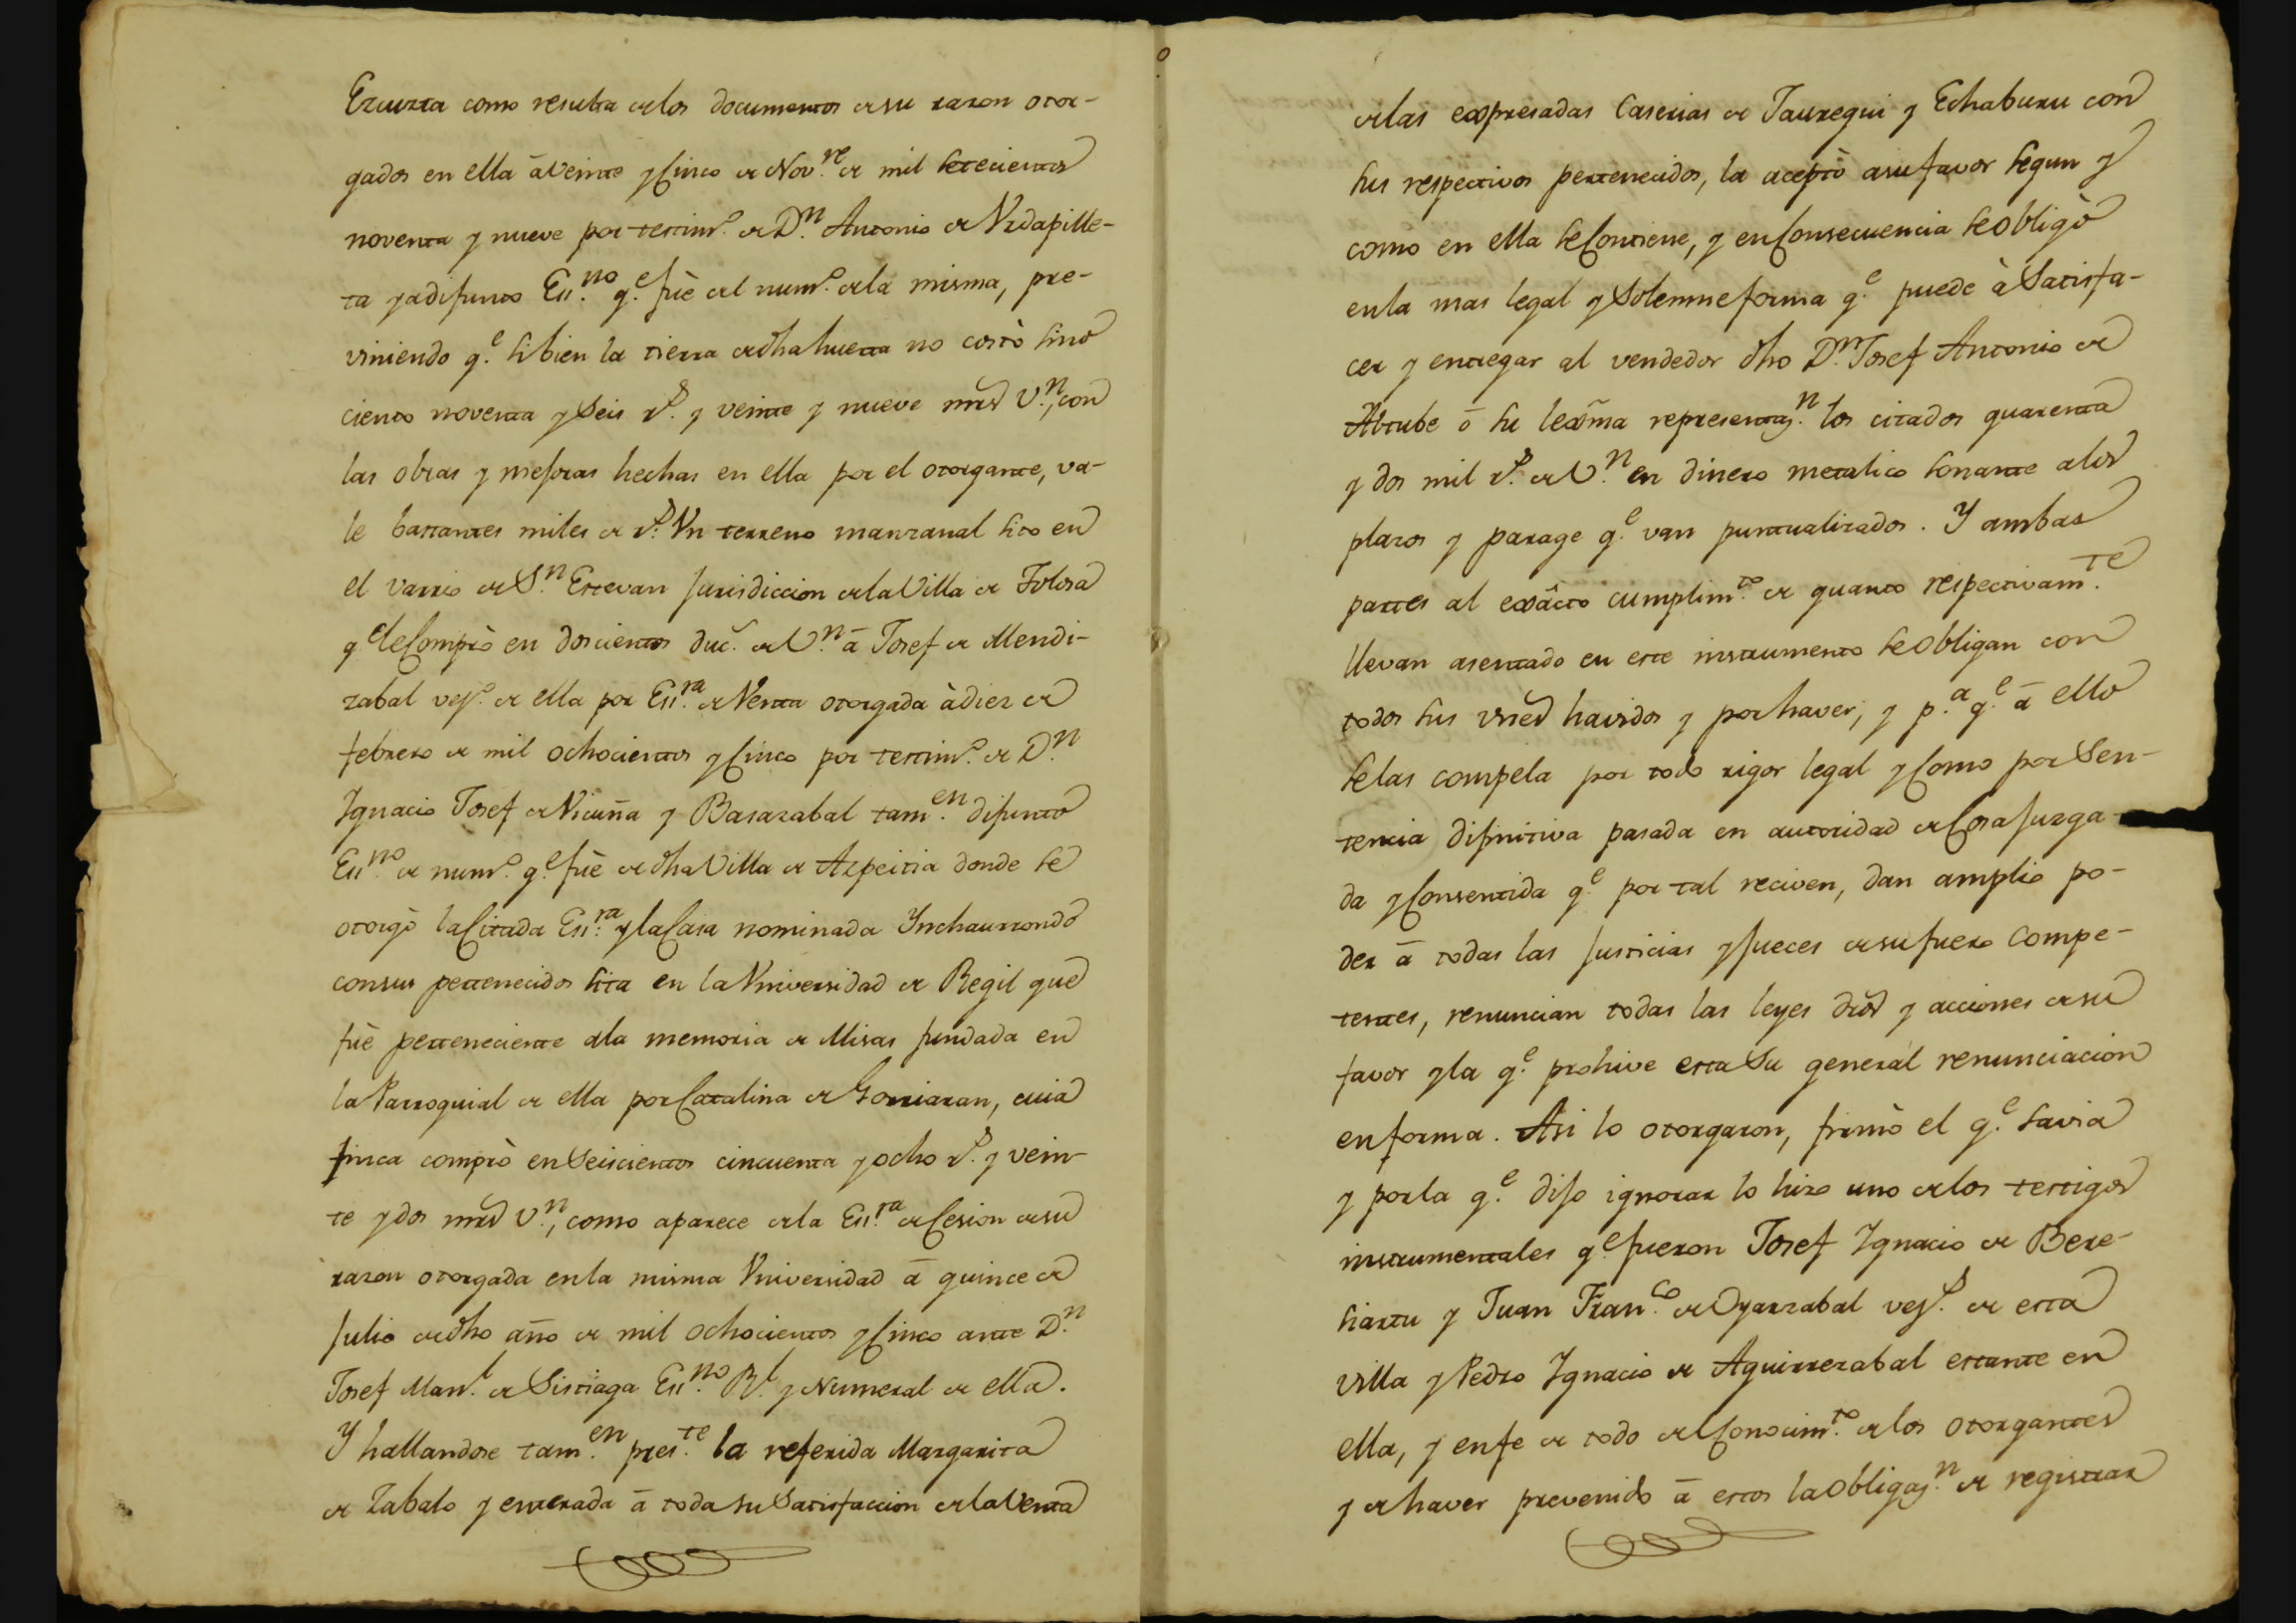 Ezcurra como resulta de los documentos de su razon otor-
gados en ella á veinte y Cinco de Nov.re de mil setecientos
noventa y nueve por testim.o de D.n Antonio de Urdapille-
ta ya difunto Es.no q.e fuè del num.o de la misma, pre-
viniendo q.e si bien la tierra de dha huerta no costò sino
ciento noventa y Seis r.s y veinte y nueve mrs V.n, con
las obras y mejoras hechas en ella por el otorgante, va-
le bastantes miles de r.s Un terreno manzanal sito en
el varrio de S.n Estevan Jurisdiccion de la Villa de Tolosa
q.e le Comprò en doscientos duc.s de V.n á Josef de Mendi-
zabal vez.o de ella por Es.ra de Venta otorgada à diez de
febrero de mil ochocientos y Cinco por testim.o de D.n
Ignacio Josef de Vicuña y Basazabal tam.en difunto
Es.no de num.o q.e fuè de dha Villa de Azpeitia donde se
otorgò la Citada Es.ra y la Casa nominada Ynchaurrondo
con sus pertenecidos sita en la Universidad de Regil que
fuè perteneciente a la memoria de Misas fundada en
la Parroquial de ella por Catalina de Gorriaran, cuia
finca comprò en Seiscientos cincuenta y ocho r.s y vein-
te y dos mrs V.n, como aparece de la Es.ra de Cesion de su
razon otorgada en la misma Universidad á quince de
Julio de dho año de mil ochocientos y Cinco ante D.n
Josef Man.l de Sistiaga Es.no R.l y Numeral de ella.
Y hallandose tam.en pres.te la referida Margarita
de Zabalo y enterada á toda su Satisfaccion de la Venta
de las expresadas Caserias de Jauregui y Echaburu con
sus respectivos pertenecidos, la aceptò a su favor segun y
como en ella se Contiene, y en Consecuencia se Obligò
en la mas legal y Solemne forma q.e puede à Satisfa-
cer y entregar al vendedor dho D.n Josef Antonio de
Abtube ó su lexma representaz.n los citados quarenta
y dos mil r.s de V.n en dinero metalico sonante a los
plazos y parage q.e van puntualizados. Y ambas
partes al exâcto cumplim.to de quanto respectivam.te
llevan asentado en este instrumento se Obligan con
todos sus vnes havidos y por haver, y p.a q.e á ello
se las compela por todo rigor legal y Como por Sen-
tencia difinitiva pasada en autoridad de Cosa Juzga-
da y Consentida q.e por tal reciven, dan amplio po-
der á todas las Justicias y Jueces de su fuero compe-
tentes, renuncian todas las leyes dros y acciones de su
favor y la q.e prohive esta Su general renunciacion
en forma. Asi lo otorgaron, firmò el q.e savia
y por la q.e dijo ignorar lo hizo uno de los testigos
instrumentales q.e fueron Josef Ignacio de Bere-
siartu y Juan Fran.co de Oyarzabal vez.s de esta
villa y Pedro Ignacio de Aguirrezabal estante en
ella, y en fe de todo del Conocim.to de los otorgantes
y de haver prevenido á estos la Obligaz.n de registrar